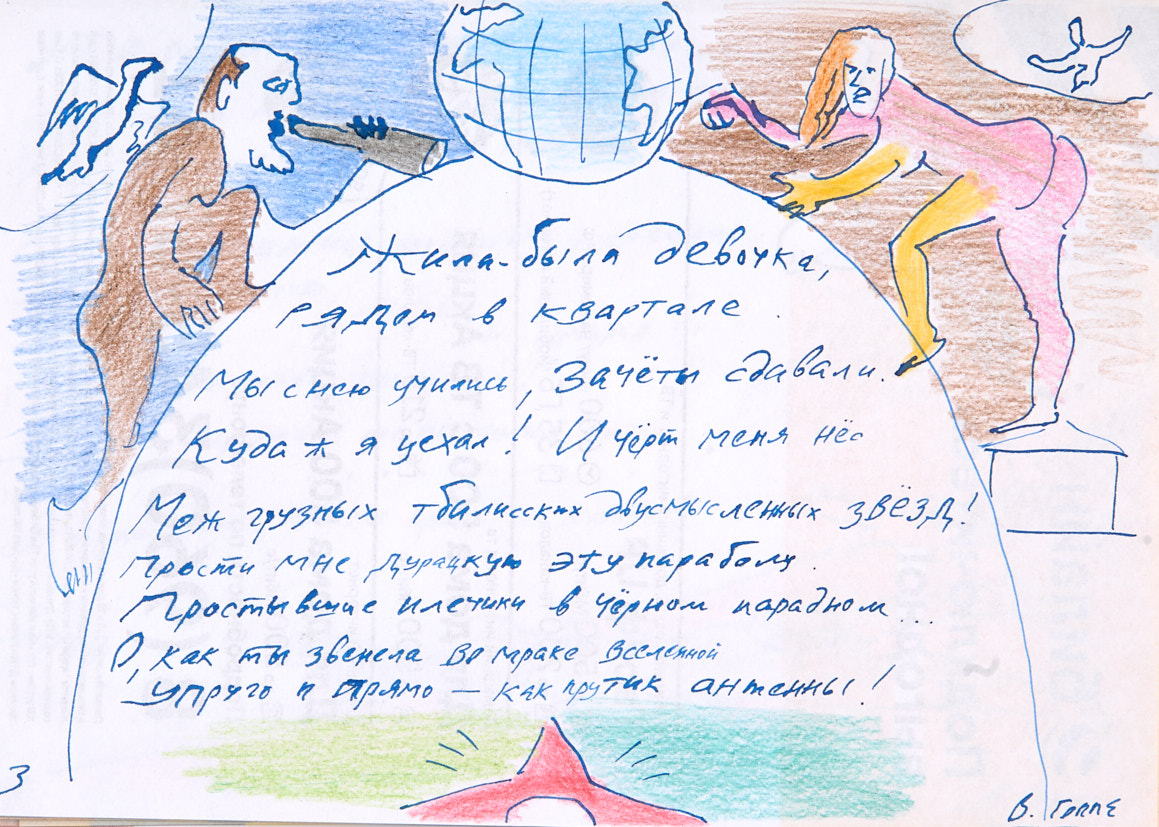 Жила-была девочка,
рядом в квартале.
Мы с нею учились, Зачёты сдавали.
Куда ж я уехал! И чёрт меня нёс
Меж грузных тбилисских двусмысленных звёзд!
Прости мне дурацкую эту параболу.
Простывшие плечики в чёрном парадном...
О, как ты звенела во мраке Вселенной
упруго и прямо — как прутик антенны!
3
В. Горпе